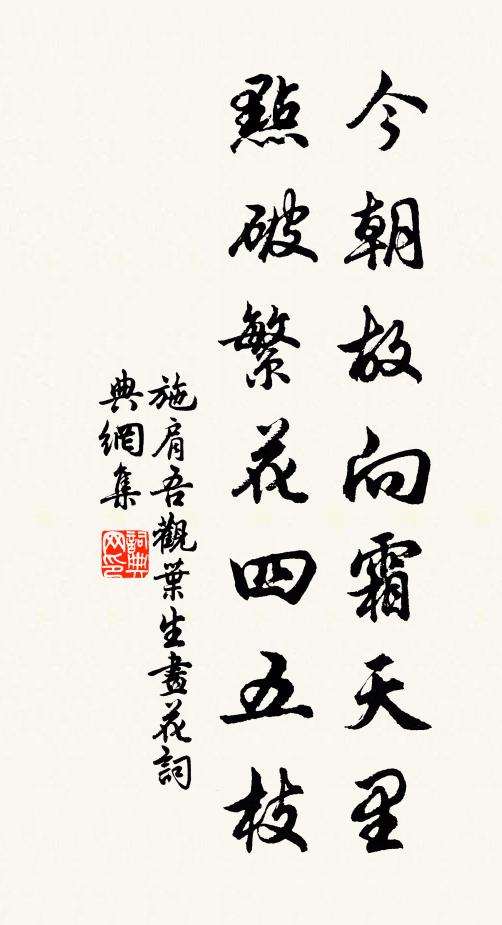 今朝故向霜天里
點破繁花四五枝
施肩吾觀葉生畫花詞
典網集
詞典
网印